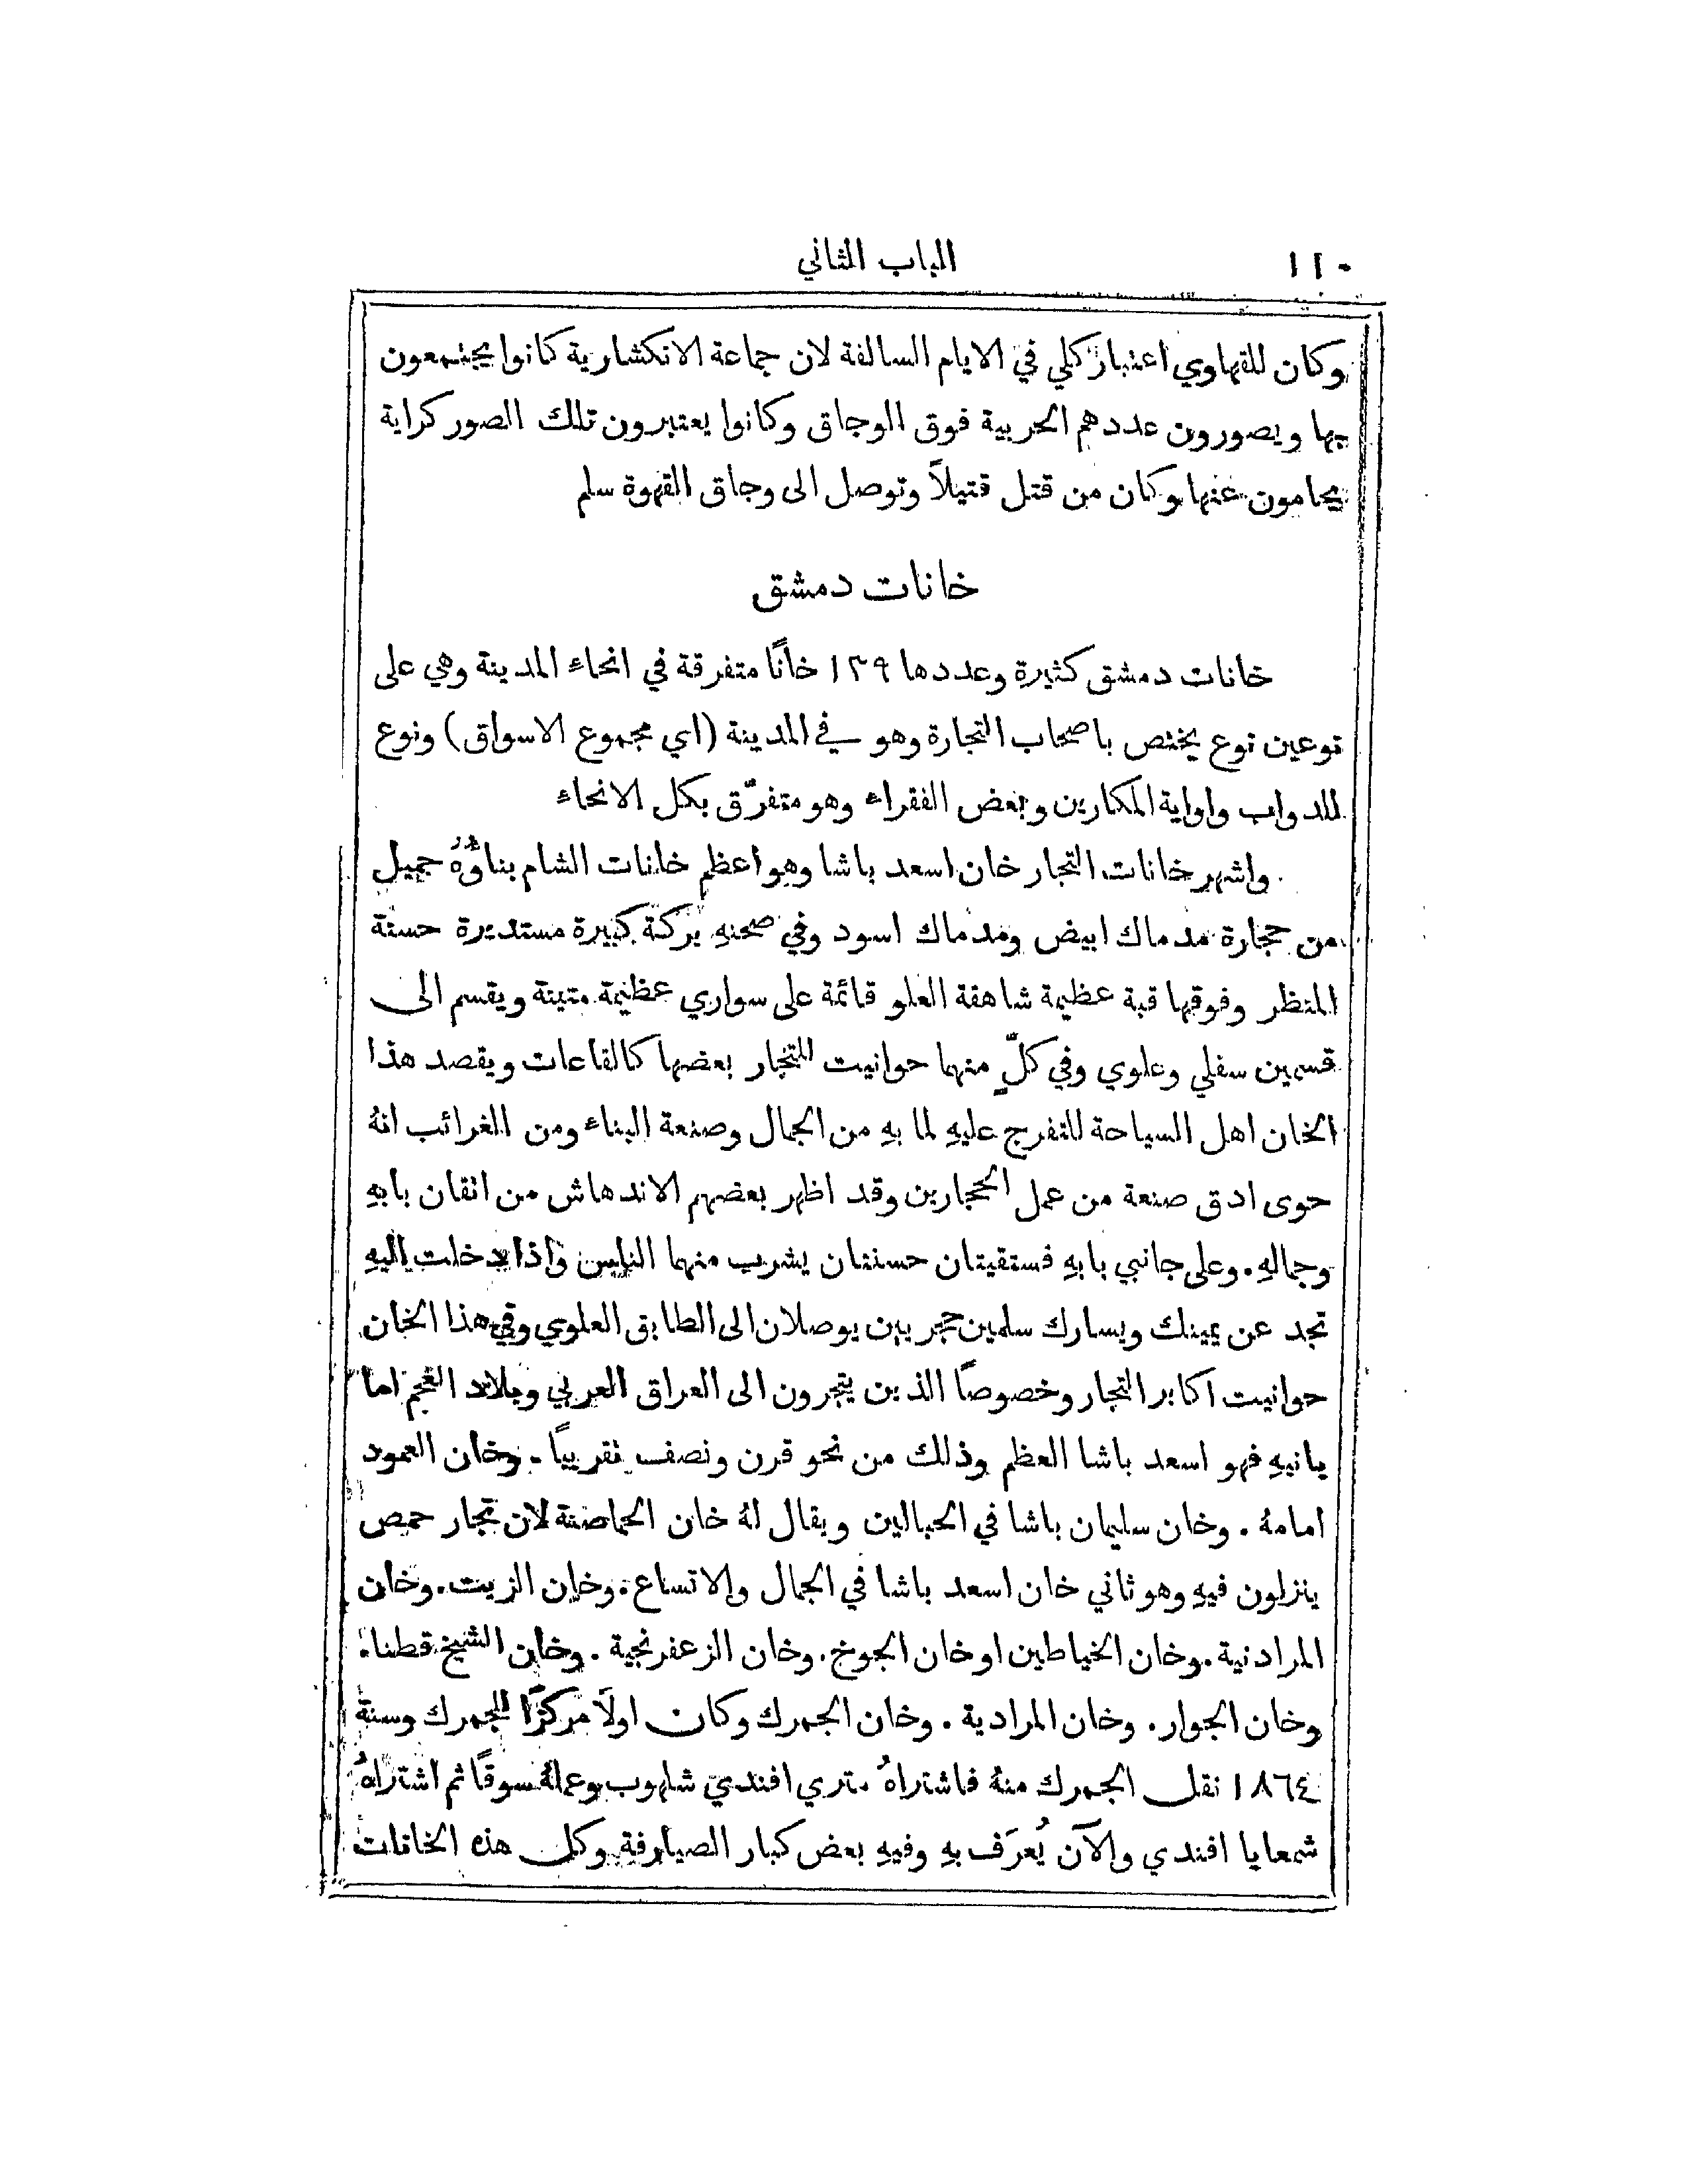 ١١٠
الباب الثاني
وكان للقهاوي اعتبار كلي في الايام السالفة لان جماعة الانكشارية كانوا يجتمعون
بها ويصورون عددهم الحربية فوق الوجاق وكانوا يعتبرون تلك الصور كراية
يحامون عنها وكان من قتل قتيلاً وتوصل الى وجاق القهوة سلم
خانات دمشق
خانات دمشق كثيرة وعددها ١٣٩ خانًا متفرقة في انحاء المدينة وهي على
نوعين نوع يختص باصحاب التجارة وهو في المدينة (اي مجموع الاسواق) ونوع
للدواب واواية المكارين وبعض الفقراء وهو متفرّق بكل الانحاء
واشهر خانات التجار خان اسعد باشا وهو اعظم خانات الشام بناؤهُ جميل
من حجارة مدماك ابيض ومدماك اسود وفي صحنهِ بركة كبيرة مستديرة حسنة
المنظر وفوقها قبة عظيمة شاهقة العلو قائمة على سواري عظيمة متينة ويقسم الى
قسمين سفلي وعلوي وفي كلٍّ منهما حوانيت للتجار بعضها كالقاعات ويقصد هذا
الخان اهل السياحة للتفرج عليهِ لما بهِ من الجمال وصنعة البناء ومن الغرائب انهُ
حوى ادق صنعة من عمل الحجارين وقد اظهر بعضهم الاندهاش من اتقان بابهِ
وجمالهِ . وعلى جانبي بابهِ فستقيتان حسنتان يشرب منهما الناس واذا دخلت اليهِ
تجد عن يمينك ويسارك سلمين حجريين يوصلان الى الطابق العلوي وفي هذا الخان
حوانيت اكابر التجار وخصوصًا الذين يتجرون الى العراق العربي وبلاد العجم اما
بانيهِ فهو اسعد باشا العظم وذلك من نحو قرن ونصف تقريبًا . وخان العمود
امامهُ . وخان سليمان باشا في الحبالين ويقال لهُ خان الحماصنة لان تجار حمص
ينزلون فيهِ وهو ثاني خان اسعد باشا في الجمال والاتساع . وخان الزيت . وخان
المرادنية . وخان الخياطين او خان الجوخ . وخان الزعفرنجية . وخان الشيخ قطنا
وخان الجوار . وخان المرادية . وخان الجمرك وكان اولاً مركزًا للجمرك وسنة
١٨٦٤ نقل الجمرك منهُ فاشتراهُ متري افندي شلهوب وعملهُ سوقًا ثم اشتراهُ
شمعايا افندي والآن يُعرَف بهِ وفيهِ بعض كبار الصيارفة وكل هذه الخانات